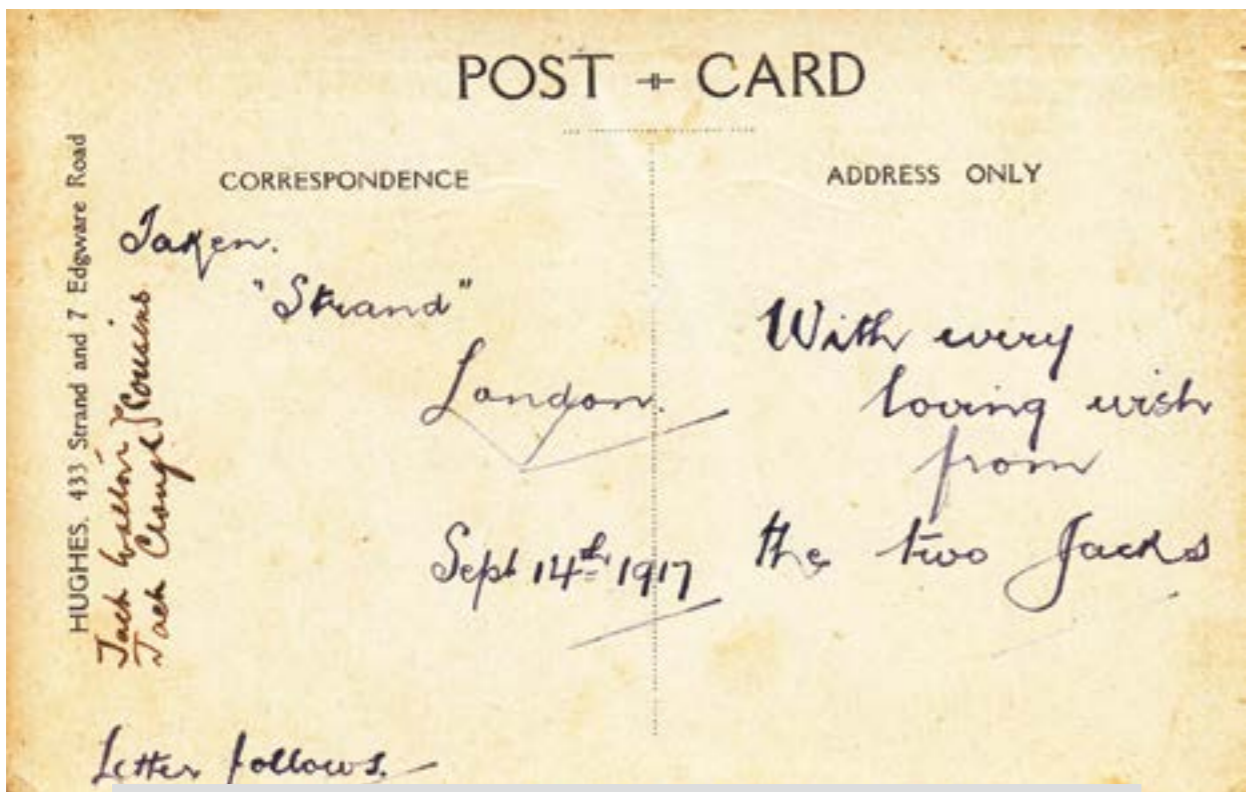 POST CARD
CORRESPONDENCE
ADDRESS ONLY
HUGHES, 433 Strand and 7 Edgware Road
Jack Walton } Cousins
Jack Clough
Taken.
"Strand"
London.
Sept 14th 1917
Letter follows.
With every
loving wish
from
the two Jacks